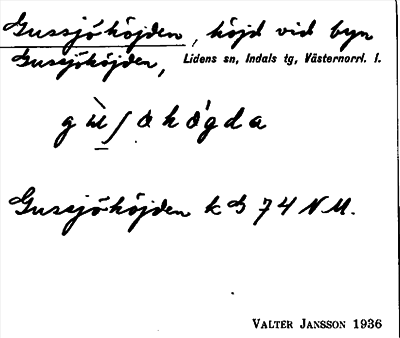 Gussjöhöjden, höjd vid byn
Gussjöhöjden, Lidens sn, Indals tg, Västernorrl. l.
Gussjö-höjden k B 74 N M.
VALTER JANSSON 1936